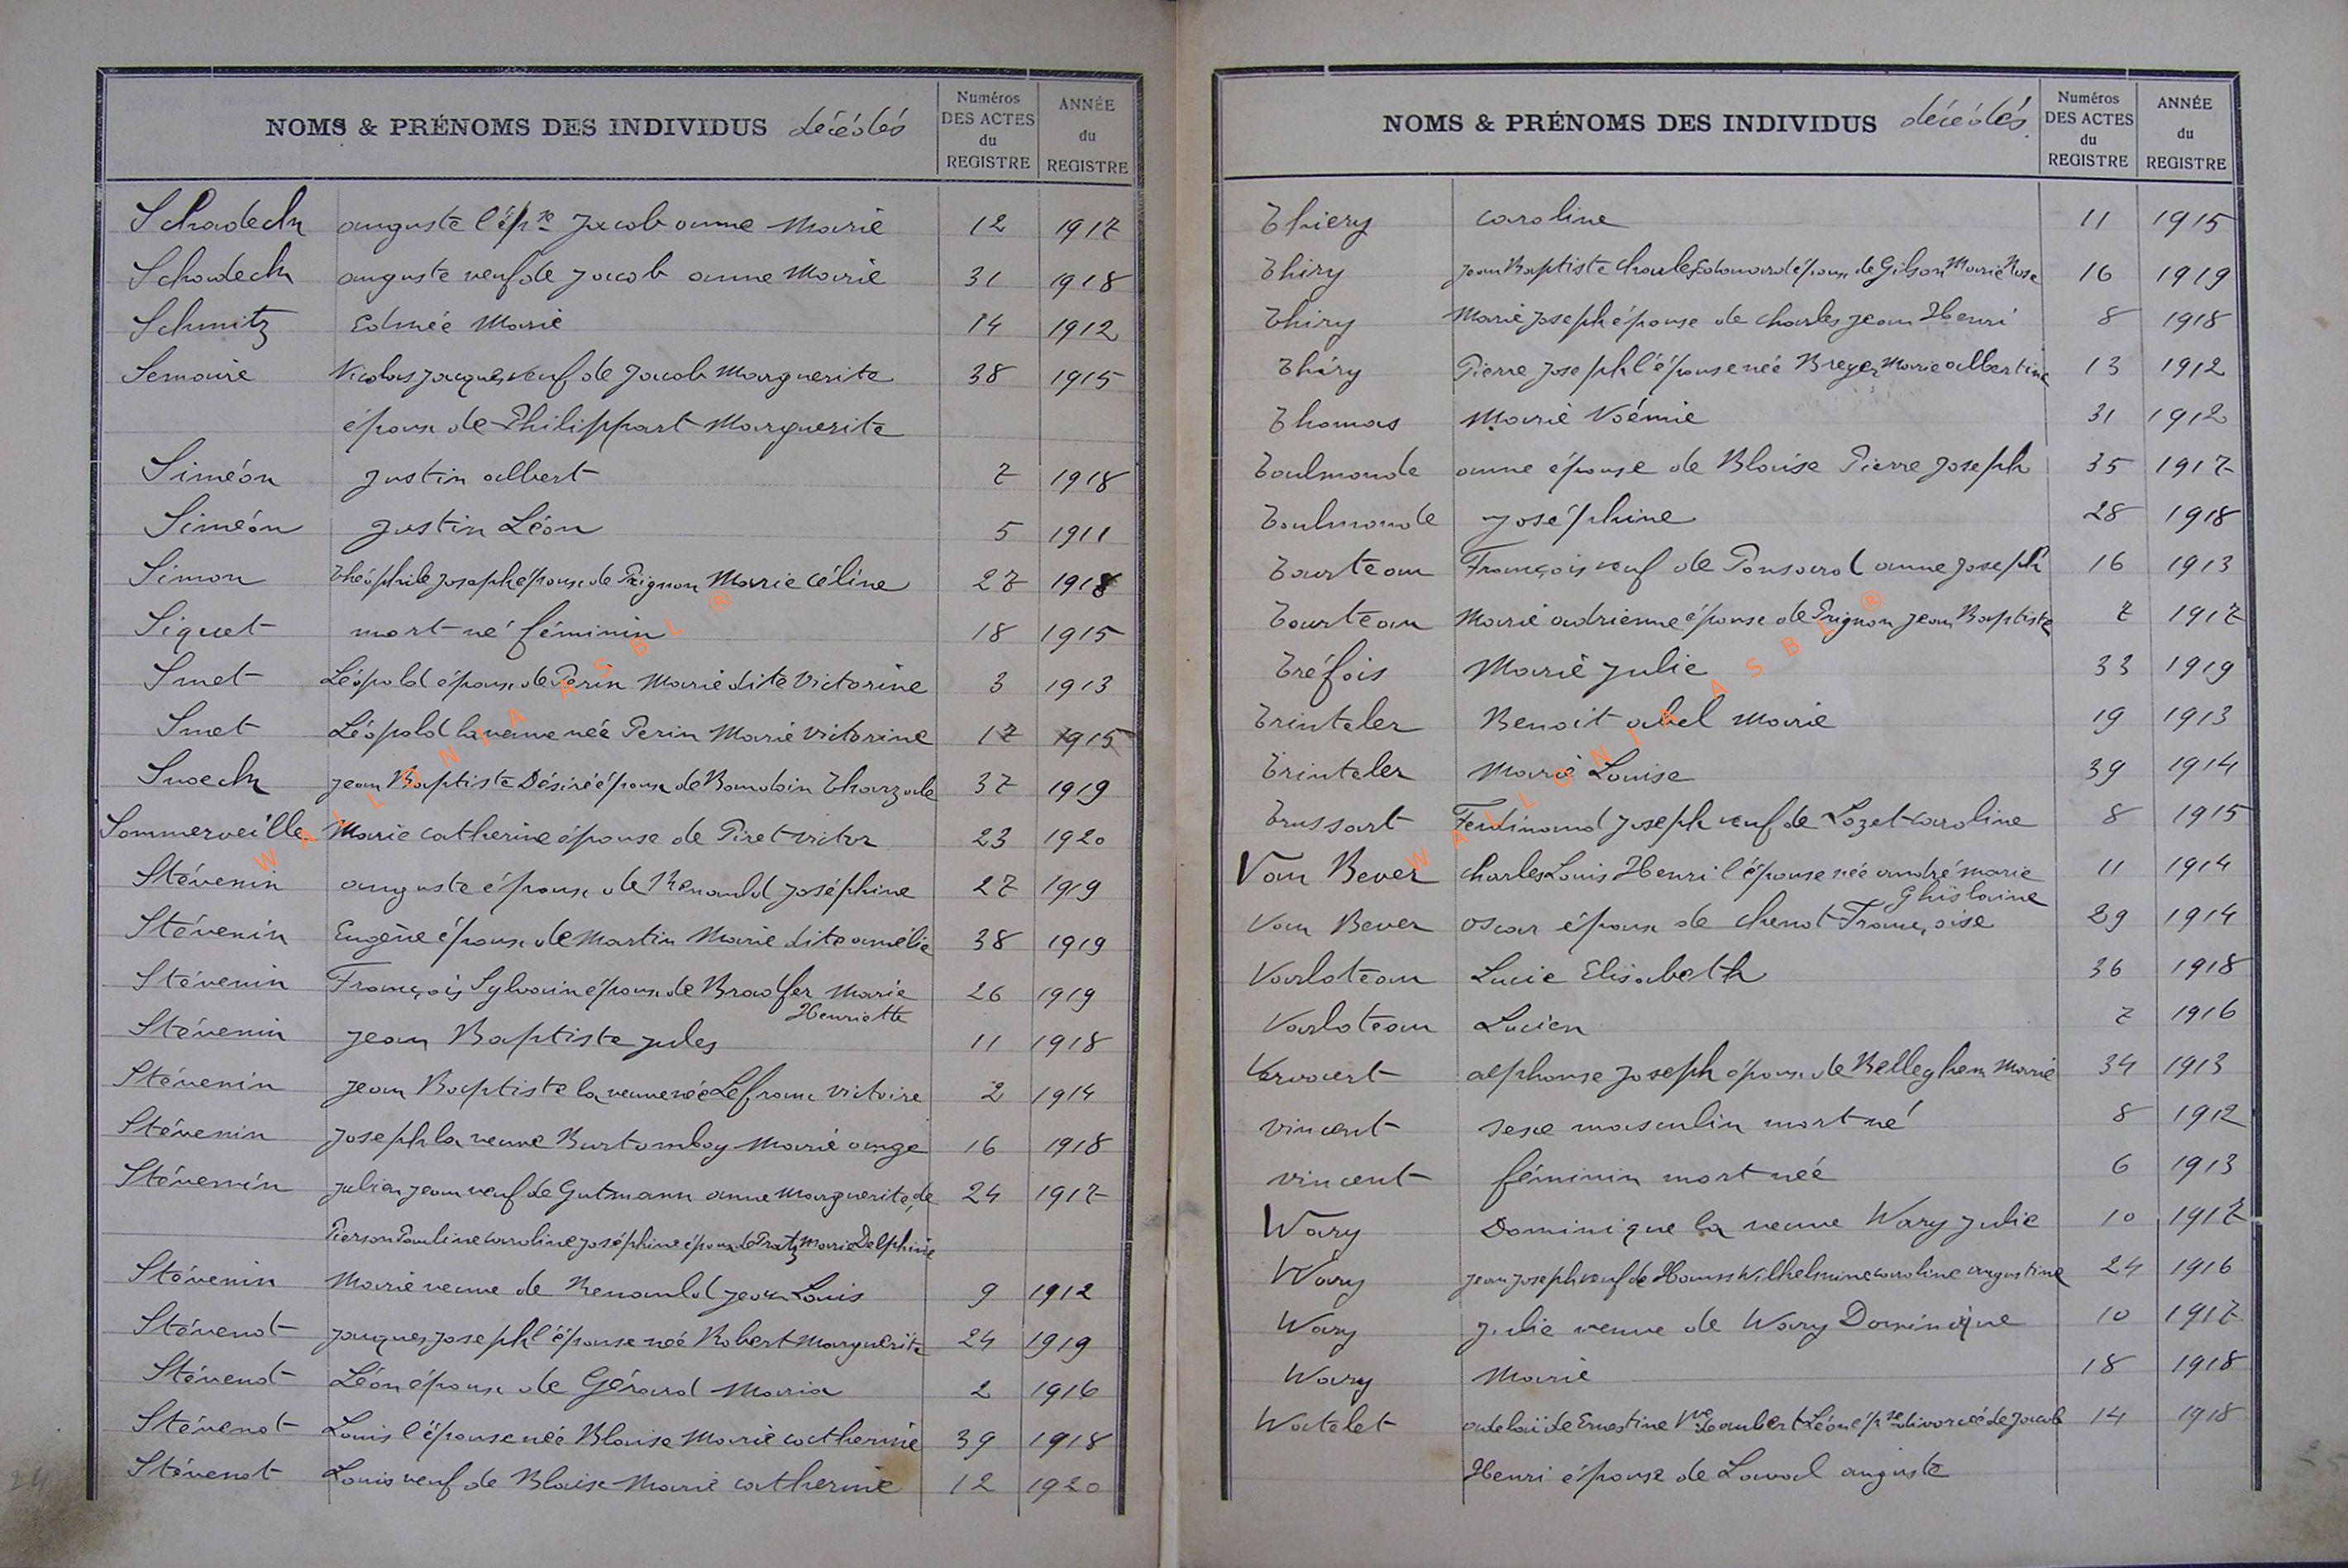 NOMS & PRÉNOMS DES INDIVIDUS décédés Numéros DES ACTES du REGISTRE ANNÉE du REGISTRE
Schadeck auguste l'épse Jacob anne Marie 12 1917
Schadeck auguste veuf de Jacob anne Marie 31 1918
Schmitz Edmée Marie 14 1912
Semaire Nicolas Jacques veuf de Jacob Marguerite 38 1915
époux de Philippart Marguerite
Siméon Justin albert 7 1918
Siméon Justin Léon 5 1911
Simon Théophile Joseph époux de Pignon Marie Céline 27 1918
Siquet mort né féminin 18 1915
Smet Léopold époux de Perin Marie dite Victorine 3 1913
Smet Léopold la veuve née Perin Marie Victorine 17 1915
Snoeck Jean Baptiste Désiré époux de Baudoin 37 1919
Sommerveille Marie catherine épouse de Piret victor 23 1920
Stévenin auguste époux de Renauld Joséphine 27 1919
Stévenin Eugène époux de Martin Marie dite amélie 38 1919
Stévenin François Sylvain époux de Bradfer Marie 26 1919
Henriette
Stévenin Jean Baptiste Jules 11 1918
Stévenin Jean Baptiste la veuve née Lefranc victoire 2 1914
Stévenin Joseph la veuve Burtomboy Marie ange 16 1918
Stévenin Julien Jean veuf de Gutmann anne Marguerite, de 24 1917
Pierson Pauline caroline Joséphine époux de Pratz Marie Delphine
Stévenin Marie veuve de Renauld Jean Louis 9 1912
Stévenot Jacques Joseph l'épouse née Robert Marguerite 24 1919
Stévenot Léon époux de Gérard Maria 2 1916
Stévenot Louis l'épouse née Blaise Marie catherine 39 1918
Stévenot Louis veuf de Blaise Marie catherine 12 1920
NOMS & PRÉNOMS DES INDIVIDUS décédés Numéros DES ACTES du REGISTRE ANNÉE du REGISTRE
Thiery caroline 11 1915
Thiry Jean Baptiste charles Edouard époux de Gilson Marie Rose 16 1919
Thiry Marie Joseph épouse de charles Jean Henri 8 1918
Thiry Pierre Joseph l'épouse née Breyer Marie albertine 13 1912
Thomas Marie Noémie 31 1912
Toulmonde anne épouse de Blaise Pierre Joseph 35 1917
Toulmonde Joséphine 28 1918
Tourteau François veuf de Ponsard anne Joseph 16 1913
Tourteau Marie adrienne épouse de Prignon Jean Baptiste 7 1917
Tréfois Marie Julie 33 1919
Trinteler Benoit abel Marie 19 1913
Trinteler Marie Louise 39 1914
Trussart Ferdinand Joseph veuf de Lozet caroline 8 1915
Van Bever charles Louis Henri l'épouse née andré marie 11 1914
Ghislaine
Van Bever oscar époux de chenot Françoise 29 1914
Varloteau Lucie Elisabeth 36 1918
Varloteau Lucien 7 1916
Vervaert alphonse Joseph époux de Belleghem Marie 34 1913
vincent sexe masculin mort né 8 1912
vincent féminin mort née 6 1913
Wary Dominique la veuve Wary Julie 10 1917
Wary Jean Joseph veuf de Wilhelmine caroline augustine 24 1916
Wary Julie veuve de Wary Dominique 10 1917
Wary Marie 18 1918
Watelet adelaïde Ernestine Vve Lambert Léon épse divorcée de Jacob 14 1918
Henri épouse de Laval auguste
WALLONIA ASBL ®
WALLONIA ASBL ®